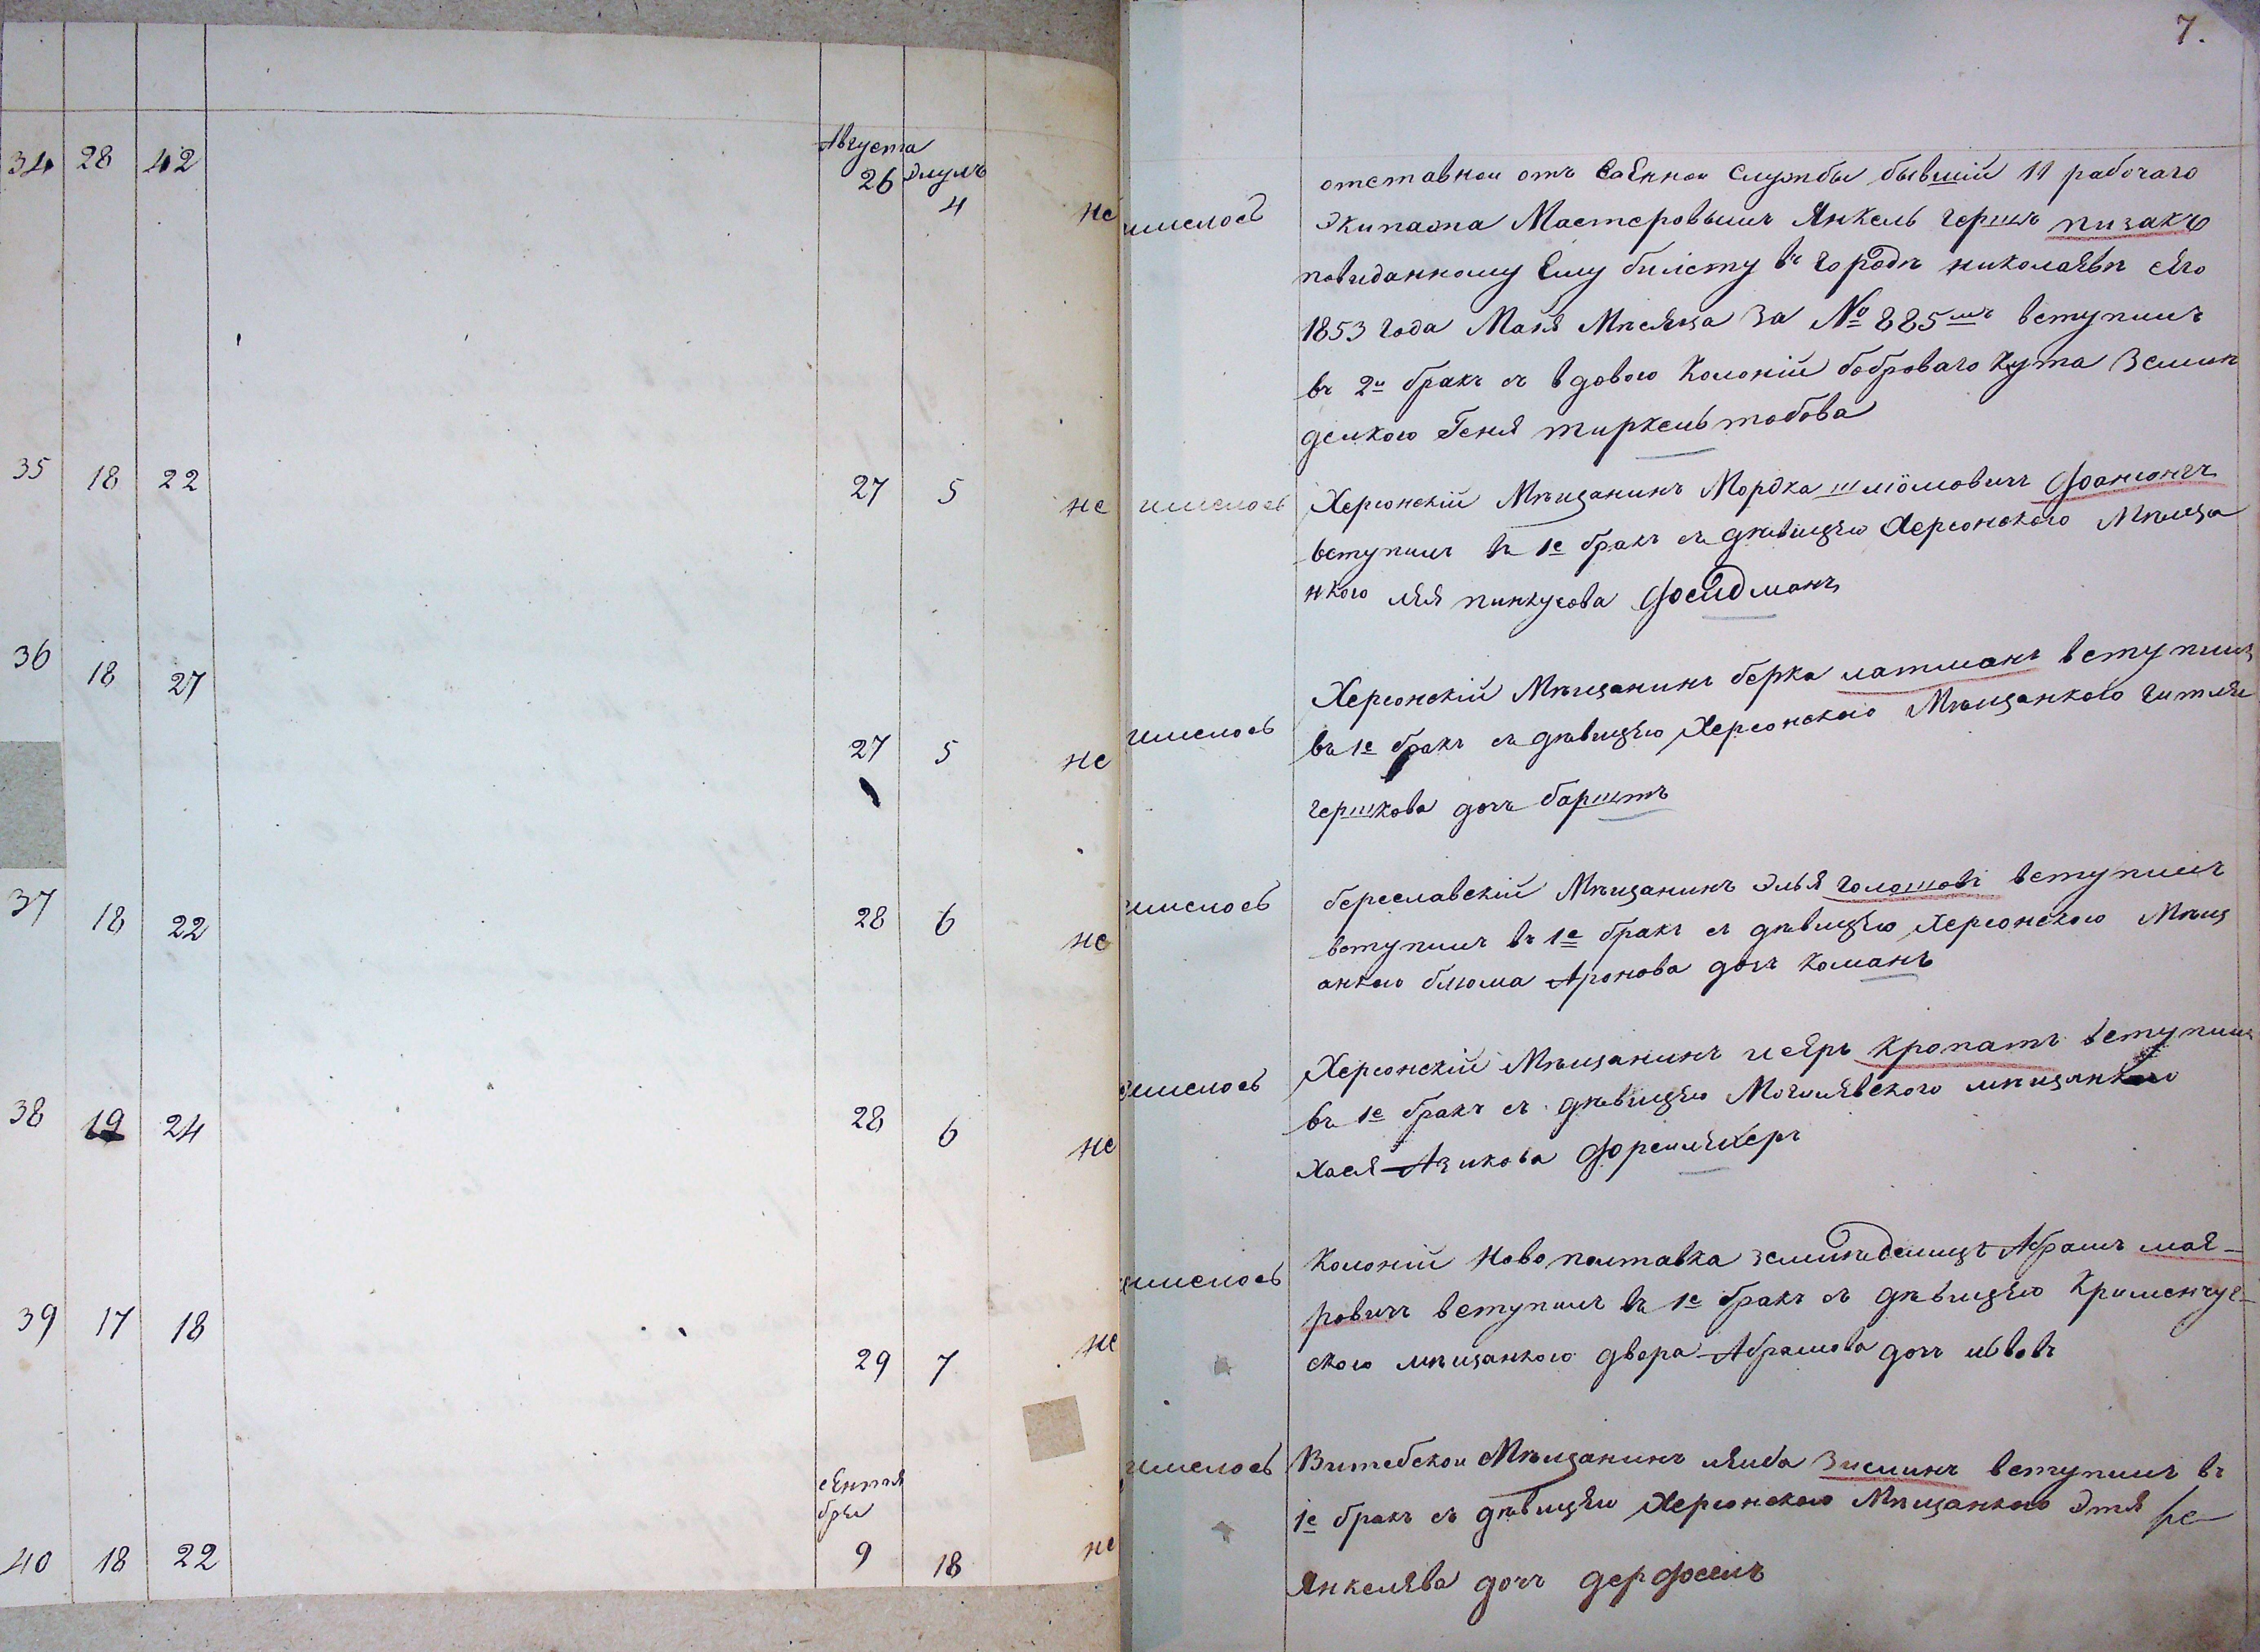 7.
Августа
34 28 42 26 Элулъ
4
не имелось
отставнои отъ ваЕннои Службы бывшій 11 рабочаго
Экипажа Мастеровымъ Янкель гершъ пизакъ
повиданному Ему билету въ городѣ николаЯвѣ сЯго
1853 года МаЯ МѣсЯца За № 885мъ вступилъ
въ 2й бракъ съ вдовою Колоній боброваго Кута Землѣ
делкою ГенЯ тиркельтобова
35 18 22 27 5 не имелось
Херсонскій Мѣщанинъ Мордка шлiомовичъ
вступилъ въ 1е бракъ съ дѣвицЯю Херсонского Мѣща
нкою лЯЯ пинкусова фоейдманъ
36 18 27 27 5 не имелось
Херсонскій Мѣщанинъ берка латманъ вступилъ
въ 1е бракъ съ дѣвицЯю Херсонского Мѣщанкого гитлЯ
гершкова дочъ барштъ
37 18 22 28 6 не имелось
береславскій Мѣщанинъ ЭльЯ вступилъ
вступилъ въ 1е бракъ съ дѣвицЯю Херсонского Мѣщ
анкою блюма Аронова дочъ Команъ
38 19 24 28 6 не имелось
Херсонскій Мѣщанинъ исЯръ кропатъ вступилъ
въ 1е бракъ съ дѣвицЯю МогилЯвского мѣщанкою
ХасЯ Азикова
39 17 18 29 7 не имелось
Колоній Ново полтавка землѣделицъ Абрамъ маЯ-
ровичъ вступилъ въ 1е бракъ съ дѣвицЯю Крименчуг-
ского мѣщанкого двера Абрамова дочъ
сЕнтЯ
брЯ
40 18 22 9 18 не имелось
Витебскои Мѣщанинъ лЯиба Зисминъ вступилъ въ
1е бракъ съ дѣвицЯю Херсонского Мѣщанкою ЭтлЯ
ЯнкелЯва дочъ дерфоелъ